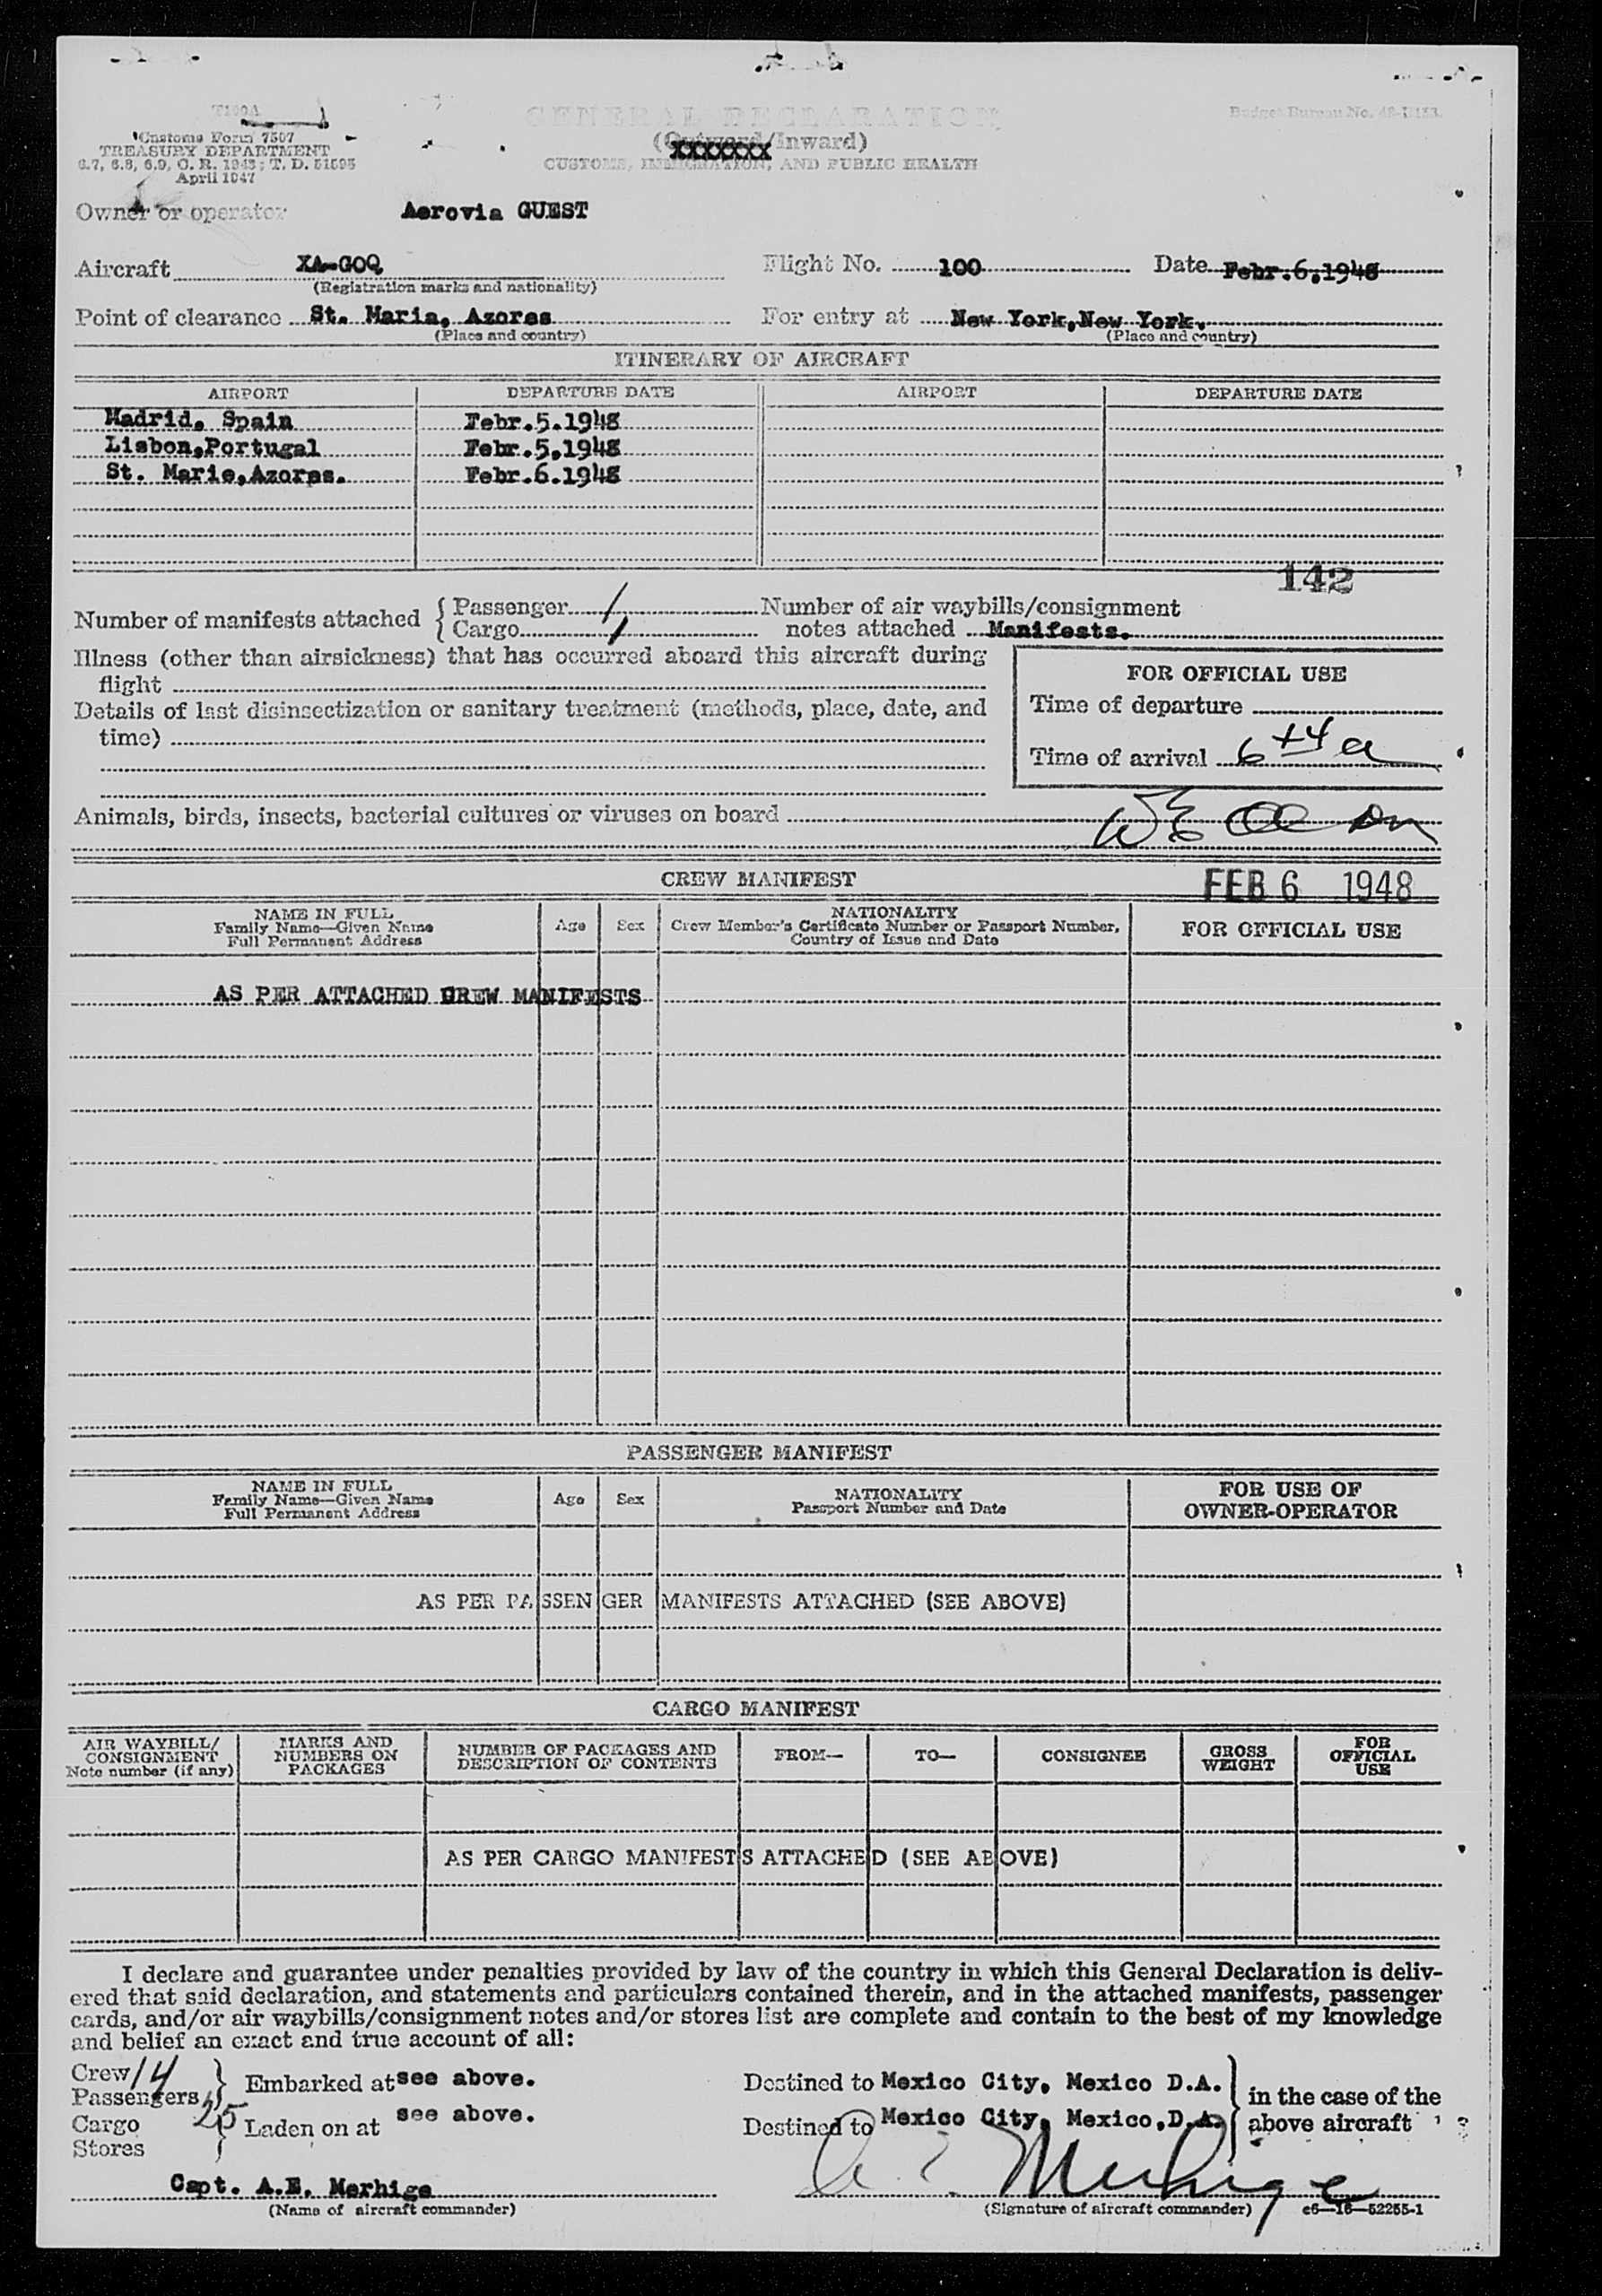 T100A
Customs Form 7507
TREASURY DEPARTMENT
6.7, 6.8, 6.9, C. R. 1943; T. D. 51595
April 1947
GENERAL DECLARATION
(Outward/Inward)
CUSTOMS, IMMIGRATION, AND PUBLIC HEALTH
Budget Bureau No.
Owner or operator Aerovia GUEST
Aircraft XA-GOQ Flight No. 100 Date Febr.6.1948
(Registration marks and nationality)
Point of clearance St. Maria, Azores For entry at New York,New York.
(Place and country) (Place and country)
ITINERARY OF AIRCRAFT
AIRPORT DEPARTURE DATE AIRPORT DEPARTURE DATE
Madrid, Spain Febr.5.1948
Lisbon,Portugal Febr.5,1948
St. Marie,Azores. Febr.6.1948
142
Number of manifests attached { Passenger 1 Number of air waybills/consignment
Cargo 1 notes attached Manifests.
Illness (other than airsickness) that has occurred aboard this aircraft during
flight
Details of last disinsectization or sanitary treatment (methods, place, date, and
time)
FOR OFFICIAL USE
Time of departure
Time of arrival
Animals, birds, insects, bacterial cultures or viruses on board
CREW MANIFEST
FEB 6 1948
NAME IN FULL
Family Name—Given Name
Full Permanent Address
Age Sex
NATIONALITY
Crew Member's Certificate Number or Passport Number,
Country of Issue and Date
FOR OFFICIAL USE
AS PER ATTACHED CREW MANIFESTS
PASSENGER MANIFEST
NAME IN FULL
Family Name—Given Name
Full Permanent Address
Age Sex
NATIONALITY
Passport Number and Date
FOR USE OF
OWNER-OPERATOR
AS PER PASSENGER MANIFESTS ATTACHED (SEE ABOVE)
CARGO MANIFEST
AIR WAYBILL/
CONSIGNMENT
Note number (if any)
MARKS AND
NUMBERS ON
PACKAGES
NUMBER OF PACKAGES AND
DESCRIPTION OF CONTENTS
FROM—
TO—
CONSIGNEE
GROSS
WEIGHT
FOR
OFFICIAL
USE
AS PER CARGO MANIFESTS ATTACHED (SEE ABOVE)
I declare and guarantee under penalties provided by law of the country in which this General Declaration is deliv-
ered that said declaration, and statements and particulars contained therein, and in the attached manifests, passenger
cards, and/or air waybills/consignment notes and/or stores list are complete and contain to the best of my knowledge
and belief an exact and true account of all:
Crew 14
Passengers 25
Embarked at see above. Destined to Mexico City, Mexico D.A.
in the case of the
Cargo
Stores
Laden on at see above. Destined to Mexico City, Mexico,D.A.
above aircraft
Capt. A.E. Merhige A. E. Merhige
(Name of aircraft commander) (Signature of aircraft commander) c6—16—52255-1